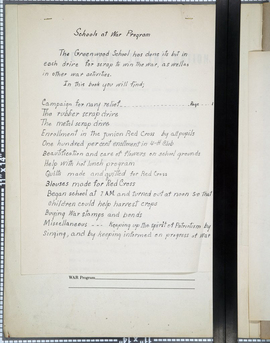 Schools at War Program
The Greenwood School has done its bit in
each drive for scrap to win the war, as well as
in other war activities.
In this book you will find;
Campaign for navy relief Page 1
The rubber scrap drive
The metal scrap drive
Enrollment in the Junior Red Cross by all pupils
One hundred per cent enrollment in 4-H Club
Beautification and care of flowers on school grounds
Help with hot lunch program
Quilts made and quilted for Red Cross
Blouses made for Red Cross
Began school at 7 A.M. and turned out at noon so that
children could help harvest crops
Buying War stamps and bonds
Miscellaneous --- Keeping up the spirit of Patriotism by
singing, and by keeping informed on progress of War
WAR Program
11" X 14"